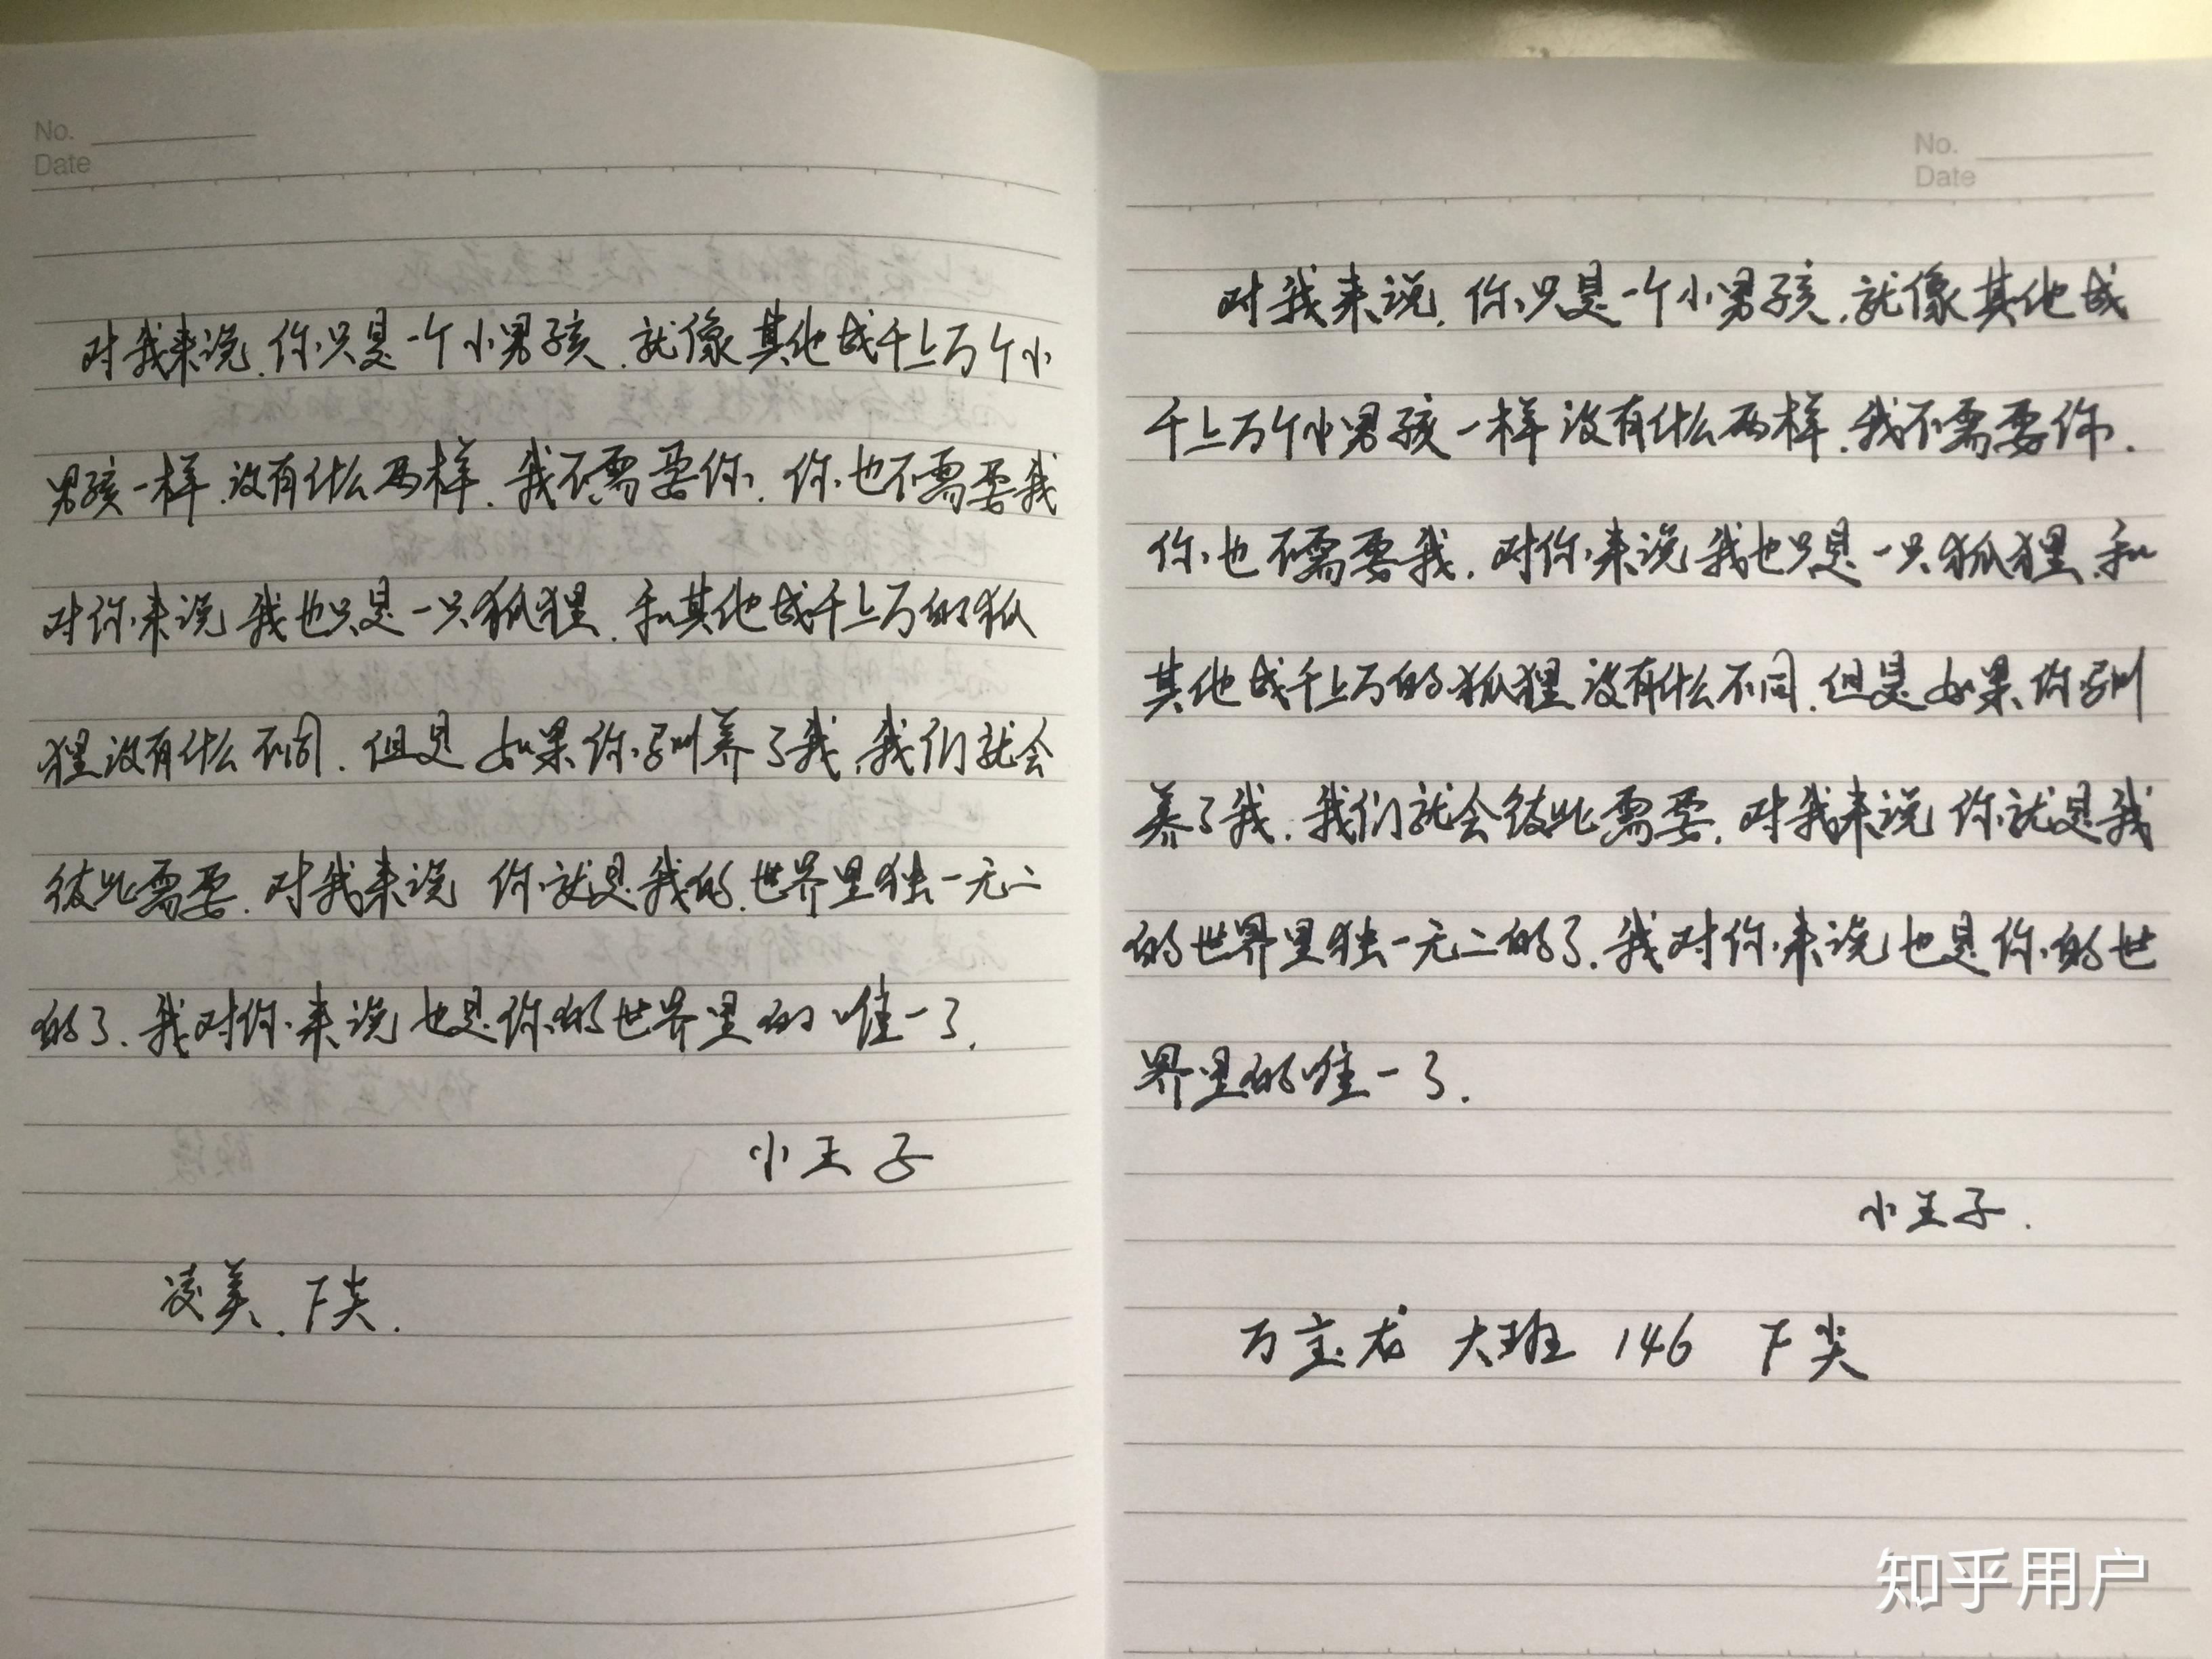 No.
Date
对我来说.你只是一个小男孩.就像其他成千上万个小
男孩一样.没有什么两样.我不需要你.你也不需要我
对你来说 我也只是一只狐狸.和其他成千上万的狐
狸没有什么不同.但是 如果你驯养了我.我们就会
彼此需要.对我来说 你就是我的.世界里独一无二
的了.我对你来说 也是你的世界里的唯一了.
小王子
凌美.F尖.
No.
Date
对我来说.你只是一个小男孩.就像其他成
千上万个小男孩一样 没有什么两样.我不需要你.
你也不需要我.对你来说 我也只是一只狐狸.和
其他成千上万的狐狸没有什么不同.但是如果你驯
养了我.我们就会彼此需要.对我来说 你就是我
的世界里独一无二的了.我对你来说 也是你的世
界里的唯一了.
小王子.
万宝龙 大班 146 F尖
知乎用户